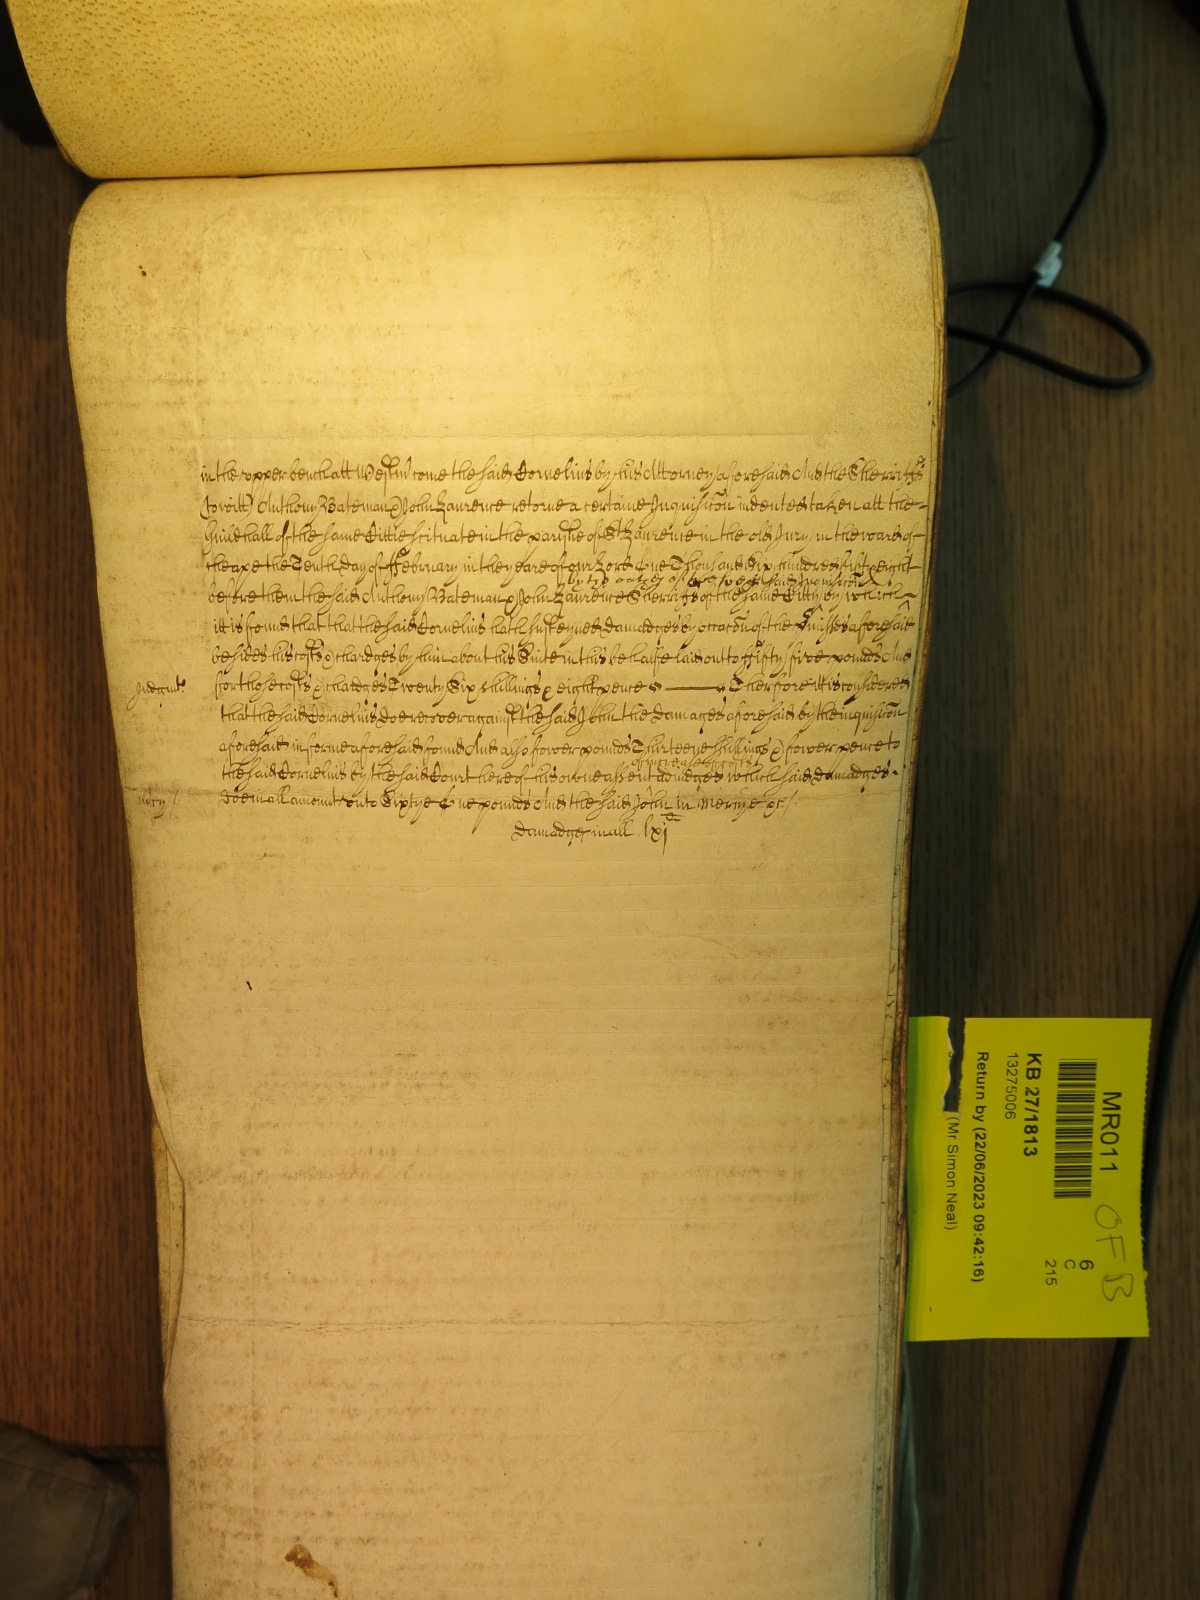 in the vpper bench att Westm̃ come the said Cornelius by his Attorney aforesaid And the Sherriffs
(to witt) Anthony Bateman & John Laurence retorne a certaine Inquisicõn indented taken att the
Guildhall of the same Cittie scituate in the parishe of St Laurence in the old Jury in the ward of
Cheape the Tenth day of February in the yeare of our Lord One Thousand Six hundred fifty eight
before them the said Anthony Bateman & John Laurence Sherriffs of the same Citty by which
by the oathes of
said Inquisicõn
itt is found that that the said Cornelius hath susteyned damadges by occacõn of the p̃misses aforesaid
besides his costs & chardges by him about his Suite in this behalfe laid out to fifty five pounds And
Judgmt. for those costs & chardges Twenty Six shillings & eight pence Therfore itt is considered
that the said Cornelius doe recover against the said John the damages aforesaid by the inquisicõn
aforesaid in forme aforesaid found And also fower pounds Thirteene shillings & fower pence to
of increase of costs
the said Cornelius by the said Court here of his owne assent adiudged which said damadges
mrcy doe in all amount vnto Sixtye One pounds And the said John in mercye &c/
damadges in all lxjli
MR011
OF B
KB 27/1813
13275006
6
C
215
Return by (22/06/2023 09:42:16)
(Mr Simon Neal)